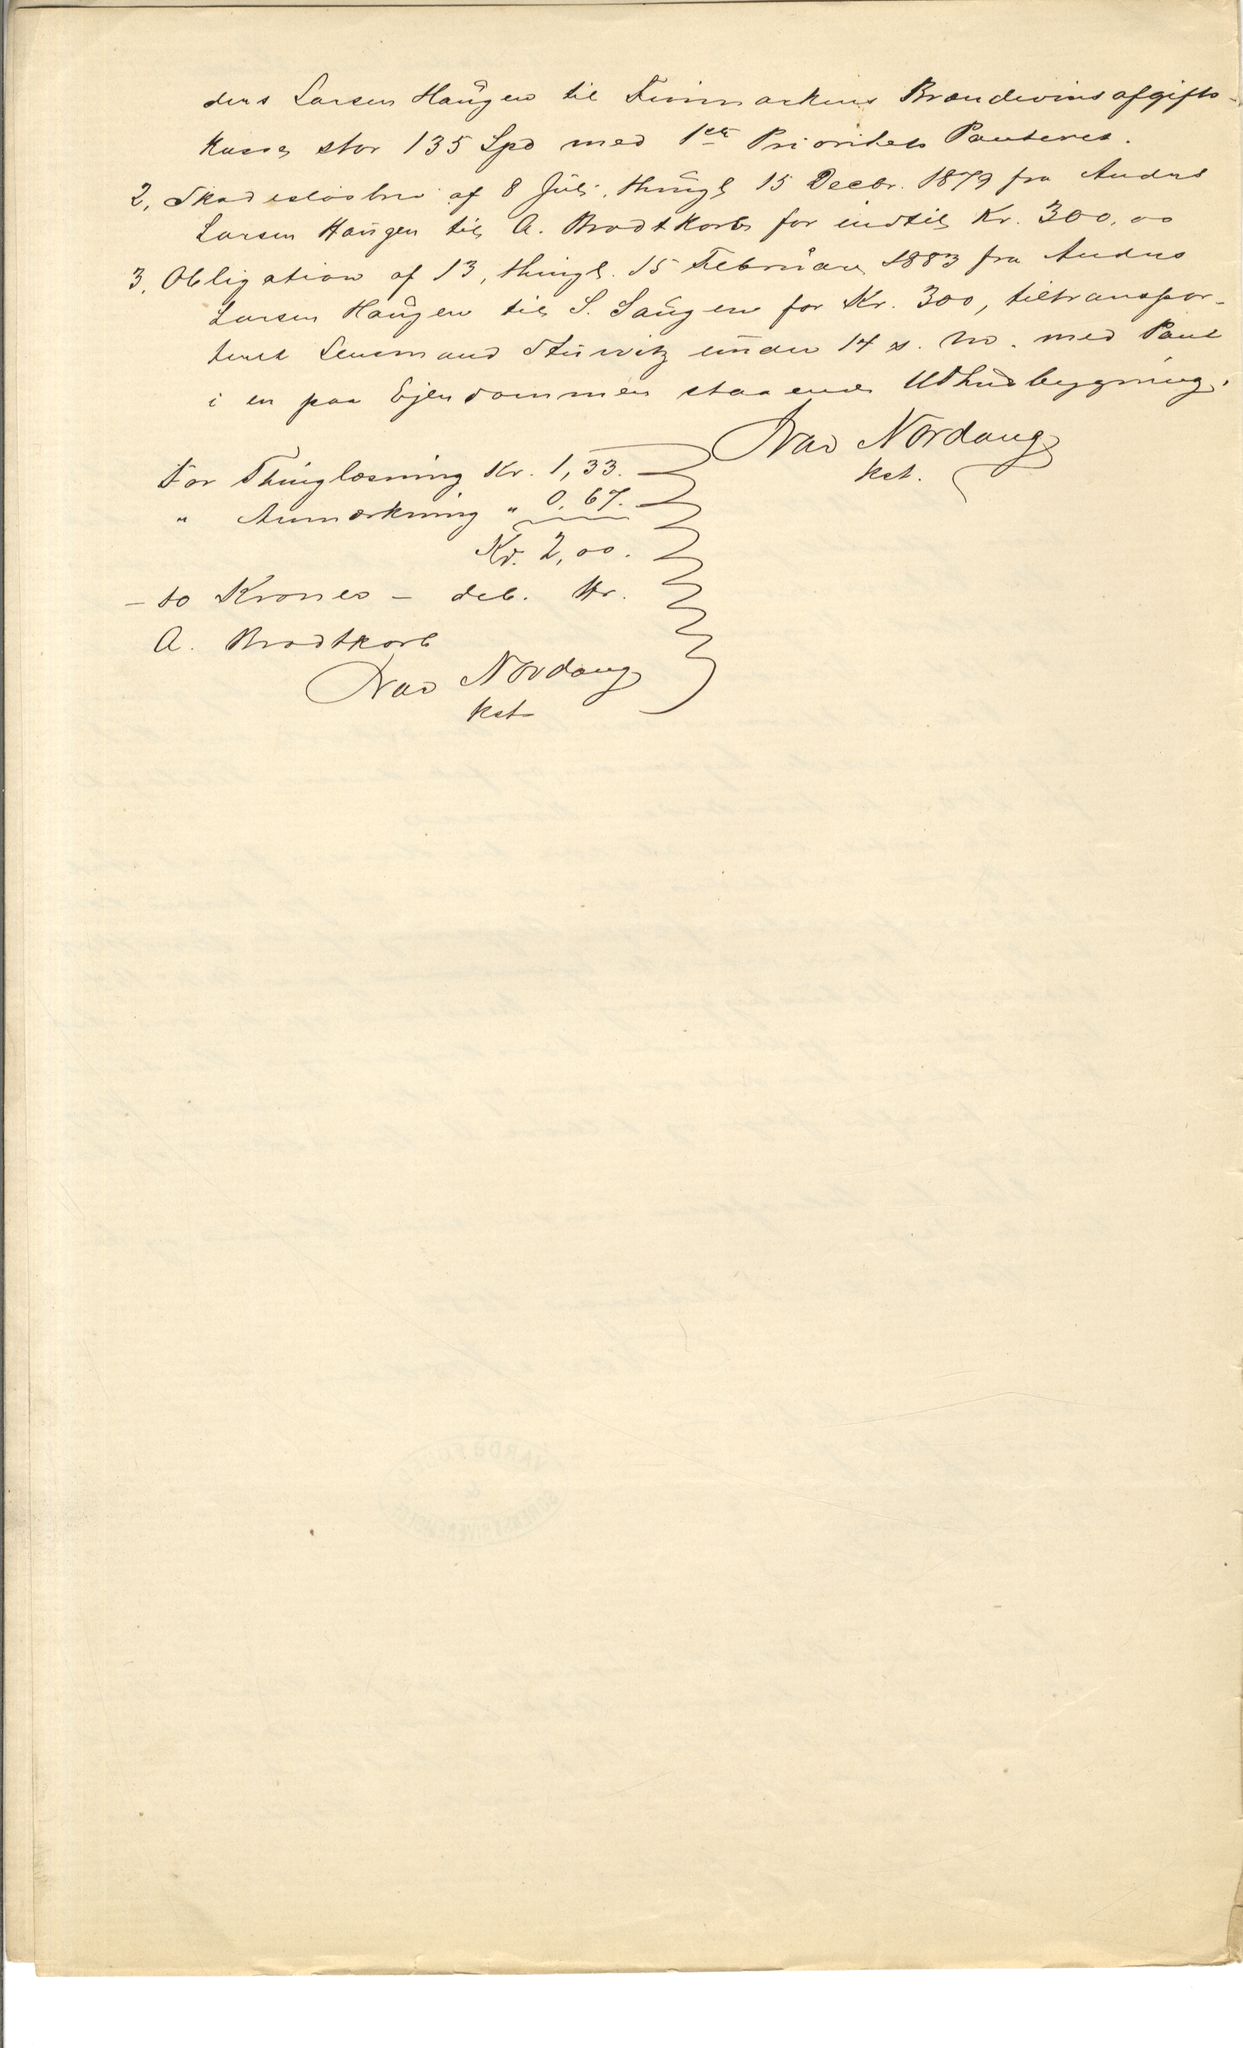 ders Larsen Haugen til Finmarkens Brændevinsafgifts-
kasse stor 135 Spd med 1ste Prioritets Panteret.
2, Skadesløsbrev af 8 Juli, thingl 15 Decbr. 1879 fra Anders
Larsen Haugen til A. Brodtkorb for indtil Kr. 300,00
3, Obligation af 13, thingl. 15 Februar 1883 fra Anders
Larsen Haugen til S. Saugen for Kr. 300, tiltranspor-
teret Lensmand Stuwitz under 14 s. M. med Pant
i en paa Ejendommen staaende Udhusbygning.
Ivar Nordang
kst.
For Thinglæsning Kr. 1,33.
" Anmærkning " 0,67.
Kr. 2,00.
– to Kroner – deb. Hr.
A. Brodtkorb
Ivar Nordang
kst
VARDØ FOGED
&
SORENSKRIVEREMBEDE